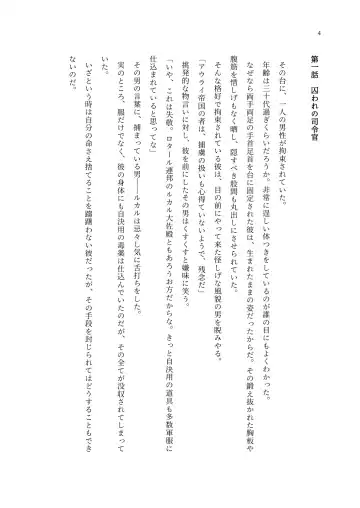 4
第一話　囚われの司令官
その台に、一人の男性が拘束されていた。
年齢は三十代過ぎくらいだろうか。非常に逞しい体つきをしているのが誰の目にもよくわかった。
なぜなら両手両足の手首足首を台に固定された彼は、生まれたままの姿だったからだ。その鍛え抜かれた胸板や
腹筋を惜しげもなく晒し、隠すべき股間も丸出しにさせられていた。
そんな格好で拘束されている彼は、目の前にやって来た怪しげな風貌の男を睨みやる。
「アウライ帝国の者は、捕虜の扱いも心得ていないようで、残念だ」
挑発的な物言いに対し、彼を前にしたその男はくすくすと嫌味に笑う。
「いや、これは失敬。ロタール連邦のルカル大佐殿ともあろうお方だからな。きっと自決用の道具も多数軍服に
仕込まれていると思ってな」
その男の言葉に、捕まっている男――ルカルは忌々し気に舌打ちをした。
実のところ、服だけでなく、彼の身体にも自決用の毒薬は仕込んでいたのだが、その全てが没収されてしまって
いた。
いざという時は自分の命さえ捨てることを躊躇わない彼だったが、その手段を封じられてはどうすることもでき
ないのだ。